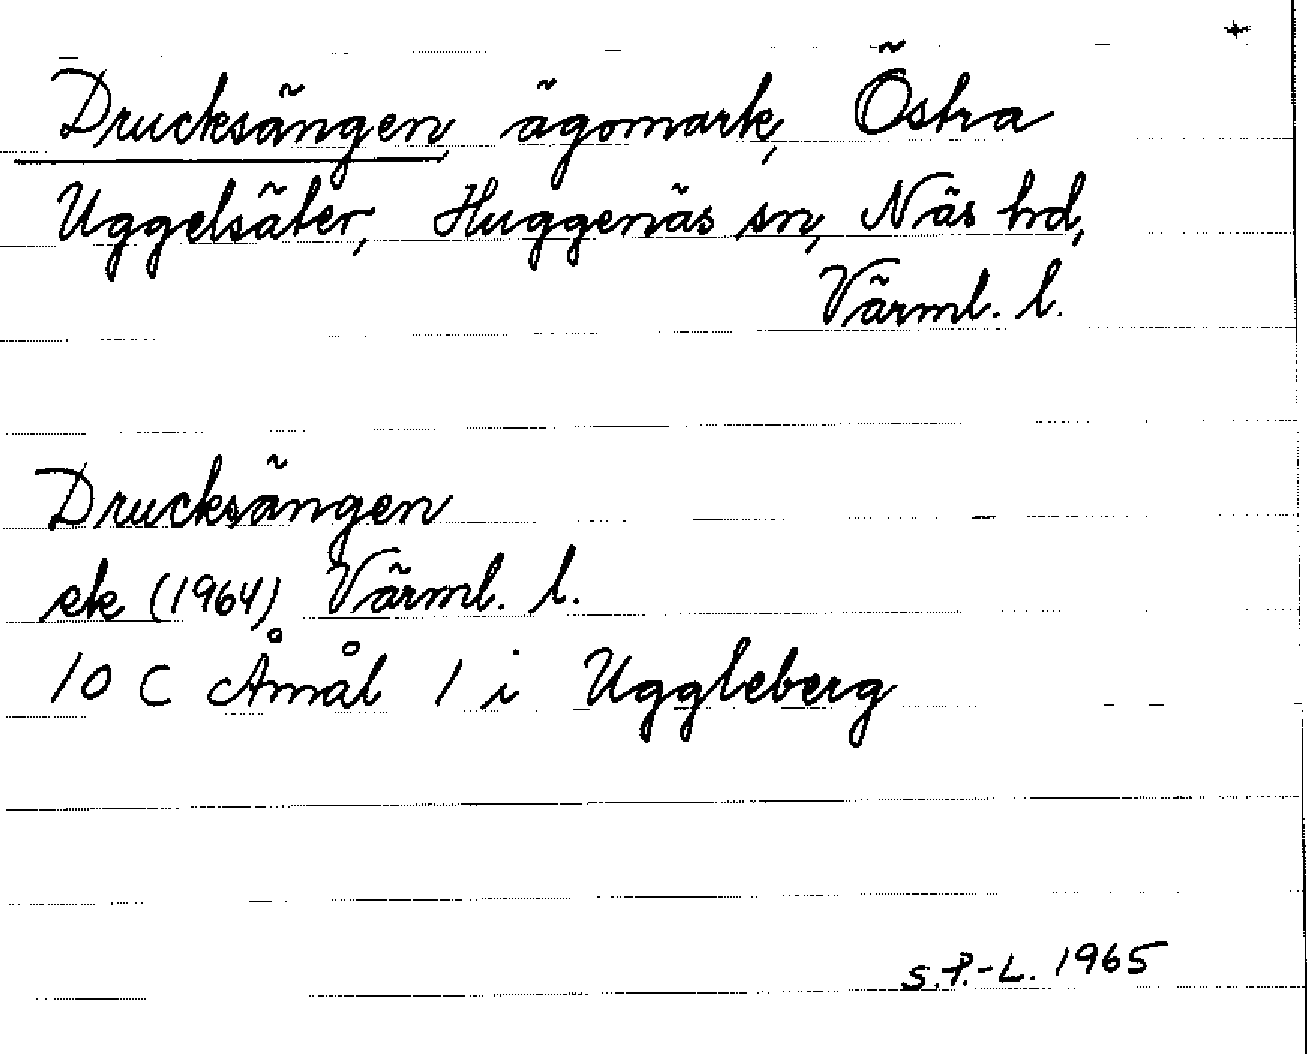 +
Drucksängen, ägomark, Östra
Uggelsäter, Huggenäs sn, Näs hd,
Värml. l.
Drucksängen
ek (1964) Värml. l.
10 C Åmål 1 i Uggleberg
S.P.-L. 1965